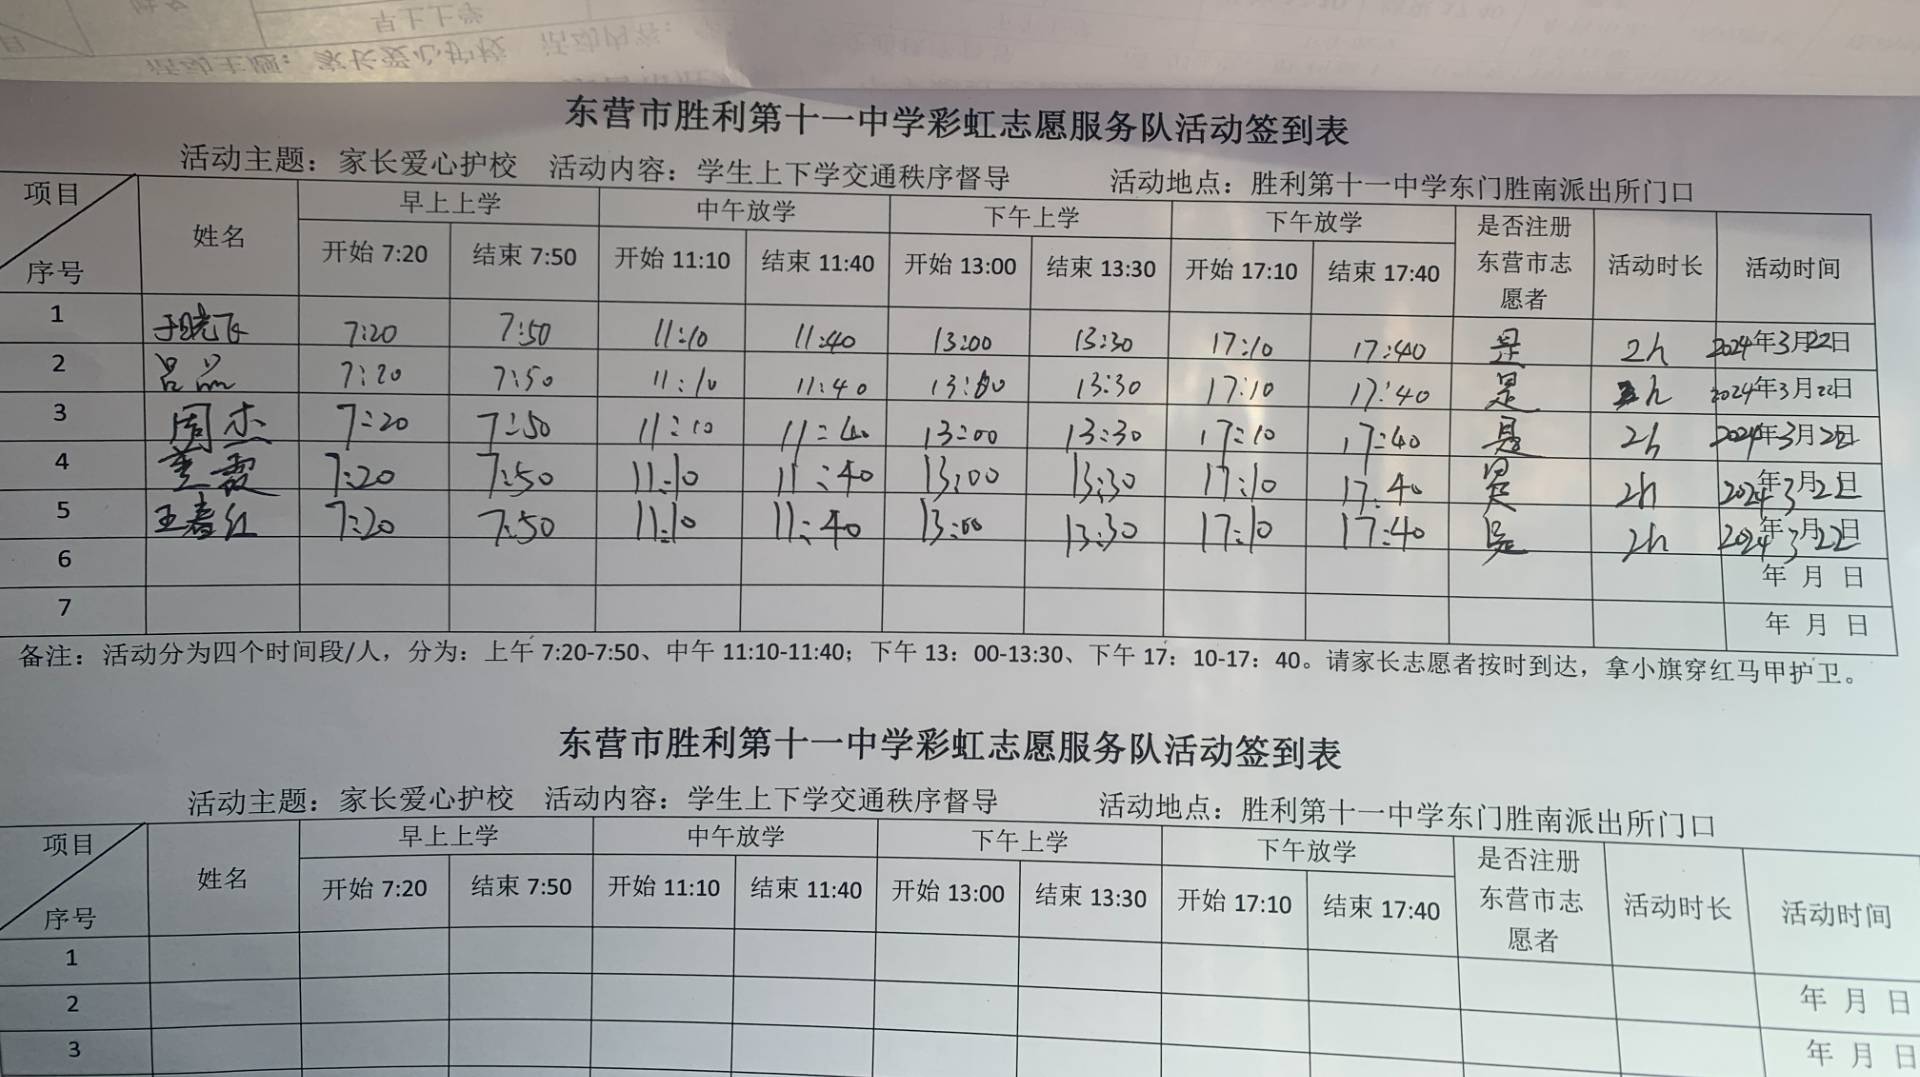 东营市胜利第十一中学彩虹志愿服务队活动签到表
活动主题：家长爱心护校 活动内容：学生上下学交通秩序督导 活动地点：胜利第十一中学东门胜南派出所门口
项目 序号 姓名 早上上学 中午放学 下午上学 下午放学 是否注册东营市志愿者 活动时长 活动时间
开始 7:20 结束 7:50 开始 11:10 结束 11:40 开始 13:00 结束 13:30 开始 17:10 结束 17:40
1 于晓飞 7:20 7:50 11:10 11:40 13:00 13:30 17:10 17:40 是 2h 2024年3月22日
2 吕品 7:20 7:50 11:10 11:40 13:00 13:30 17:10 17:40 是 h 2024年3月22日
3 周杰 7:20 7:50 11:10 11:40 13:00 13:30 17:10 17:40 是 2h 2024年3月22日
4 董霞 7:20 7:50 11:10 11:40 13:00 13:30 17:10 17:40 是 2h 2024年3月22日
5 王春红 7:20 7:50 11:10 11:40 13:00 13:30 17:10 17:40 是 2h 2024年3月22日
6 年 月 日
7 年 月 日
备注：活动分为四个时间段/人，分为：上午 7:20-7:50、中午 11:10-11:40；下午 13：00-13:30、下午 17：10-17：40。请家长志愿者按时到达，拿小旗穿红马甲护卫。
东营市胜利第十一中学彩虹志愿服务队活动签到表
活动主题：家长爱心护校 活动内容：学生上下学交通秩序督导 活动地点：胜利第十一中学东门胜南派出所门口
项目 序号 姓名 早上上学 中午放学 下午上学 下午放学 是否注册东营市志愿者 活动时长 活动时间
开始 7:20 结束 7:50 开始 11:10 结束 11:40 开始 13:00 结束 13:30 开始 17:10 结束 17:40
1
2 年 月 日
3 年 月 日